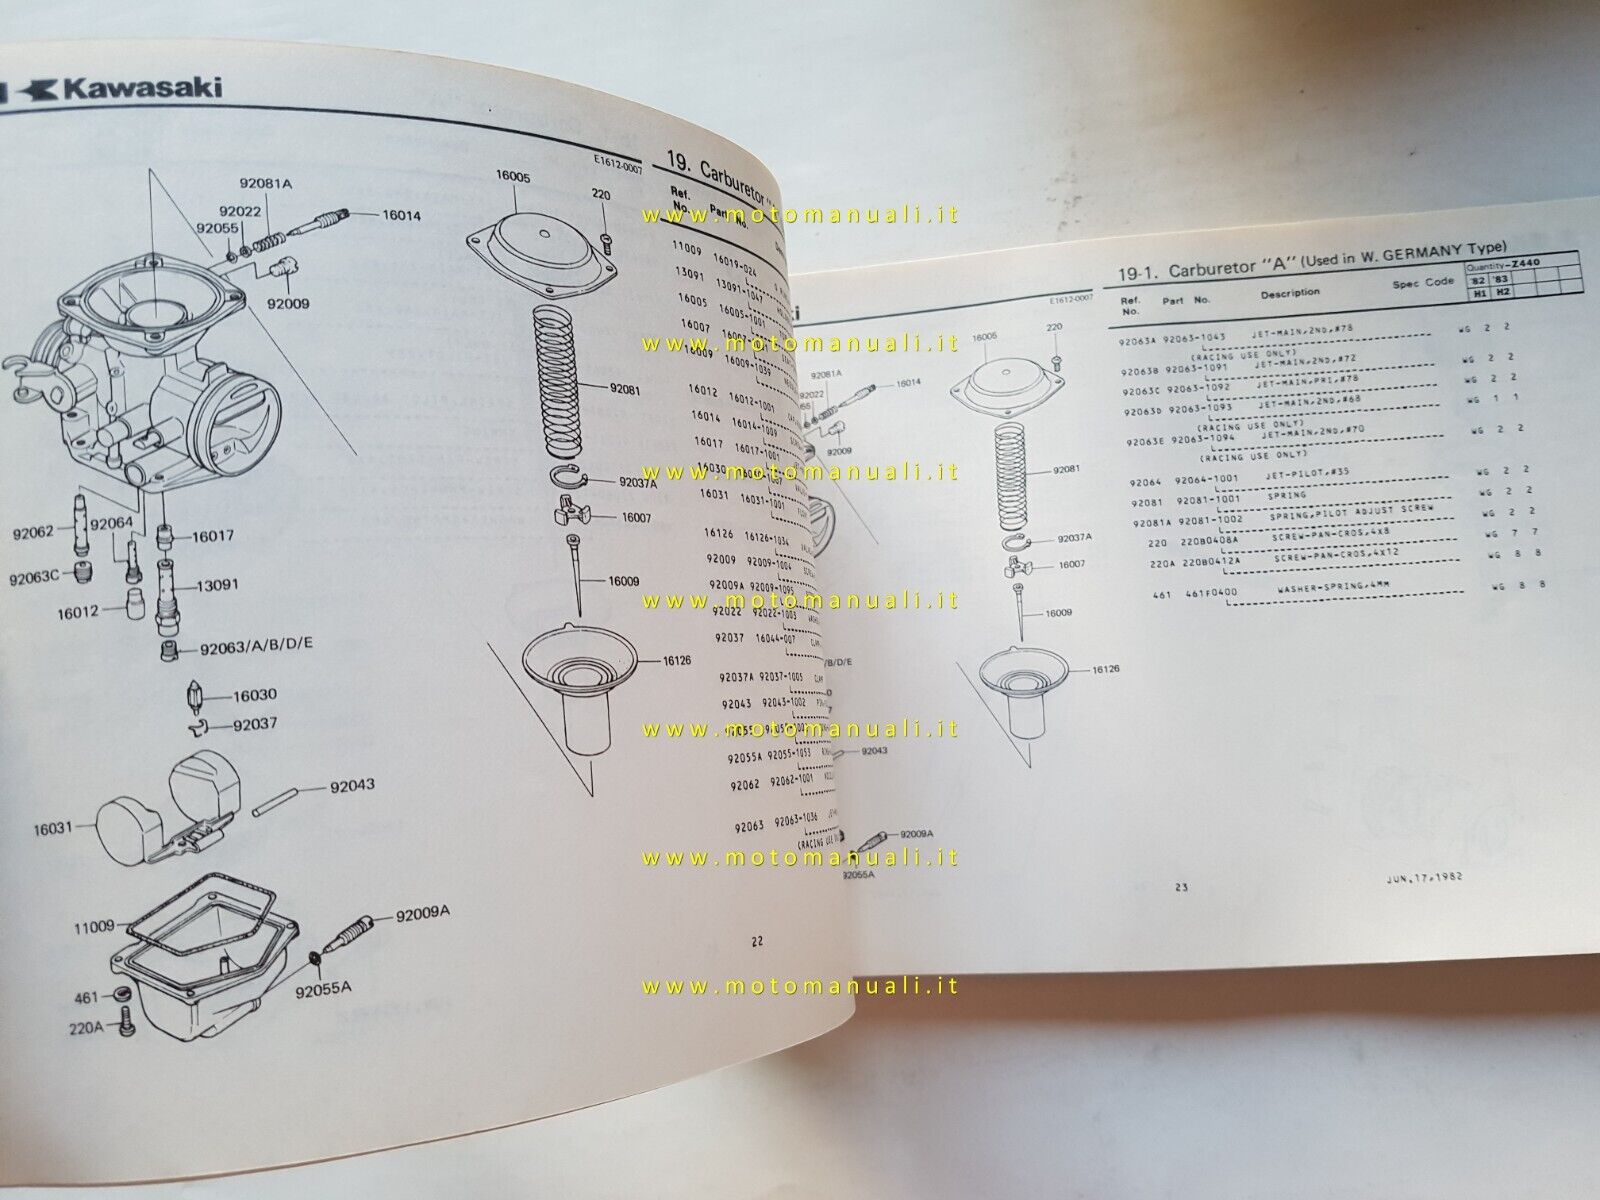 Kawasaki
E1612-0007
92081A
92022
92055
16014
92009
16005
220
92081
92037A
16007
16009
16126
92062
92064
16017
92063C
16012
13091
92063/A/B/D/E
16030
92037
16031
92043
11009
92009A
92055A
461
220A
19. Carburetor
Ref. No. Part No.
11009 16019-024
13091 13091-1047
16005 16005-1001
16007
16009 16009-1039
16012 16012-1001
16014 16014-1009
16017 16017-1001
16030
16031 16031-1001
16126 16126-1034
92009 92009-1004
92009A 92009-1095
92022 92022-1003
92037 16044-007
92037A 92037-1005
92043 92043-1002
92055
92055A 92055-1053
92062 92062-1001
92063 92063-1036
(RACING USE
22
E1612-0007
16005
220
92081A
16014
92009
92081
92037A
16007
16009
16126
/B/D/E
92043
92009A
92055A
19-1. Carburetor "A" (Used in W. GERMANY Type)
Ref. No. Part No. Description Spec Code Quantity-Z440
'82 '83
H1 H2
92063A 92063-1043 JET-MAIN,2ND,#78 WG 2 2
(RACING USE ONLY)
92063B 92063-1091 JET-MAIN,2ND,#72 WG 2 2
92063C 92063-1092 JET-MAIN,PRI,#78 WG 2 2
92063D 92063-1093 JET-MAIN,2ND,#68 WG 1 1
(RACING USE ONLY)
92063E 92063-1094 JET-MAIN,2ND,#70 WG 2 2
(RACING USE ONLY)
92064 92064-1001 JET-PILOT,#35 WG 2 2
92081 92081-1001 SPRING WG 2 2
92081A 92081-1002 SPRING,PILOT ADJUST SCREW WG 2 2
220 220B0408A SCREW-PAN-CROS,4X8 WG 7 7
220A 220B0412A SCREW-PAN-CROS,4X12 WG 8 8
461 461F0400 WASHER-SPRING,4MM WG 8 8
23
JUN,17,1982
www.motomanuali.it
www.motomanuali.it
www.motomanuali.it
www.motomanuali.it
www.motomanuali.it
www.motomanuali.it
www.motomanuali.it